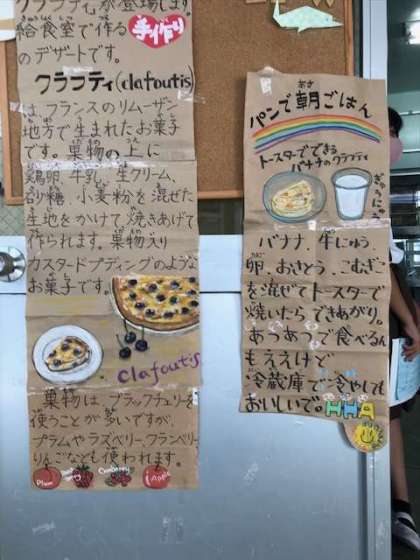 クラフティが登場します。
給食室で作る
手作り
のデザートです。
クラフティ(clafoutis)
は、フランスのリムーザン
地方で生まれたお菓子
です。菓物の上に
鶏卵、牛乳、生クリーム、
砂糖、小麦粉を混ぜた
生地をかけて焼きあげて
作られます。菓物入り
カスタードプディングのような
お菓子です。
clafoutis
菓物は、ブラックチェリーを
使うことが多いですが、
プラムやラズベリー、クランベリー、
りんごなども使われます。
Plum
Cranberry
Apple
パンで朝ごはん
あさ
トースターでできる
バナナのクラフティ
ぎゅうにゅう
バナナ、牛にゅう、
卵、おさとう、こむぎこ
を混ぜてトースターで
焼いたらできあがり。
あつあつで食べるん
もええけど
冷蔵庫で冷やしても
おいしいで。